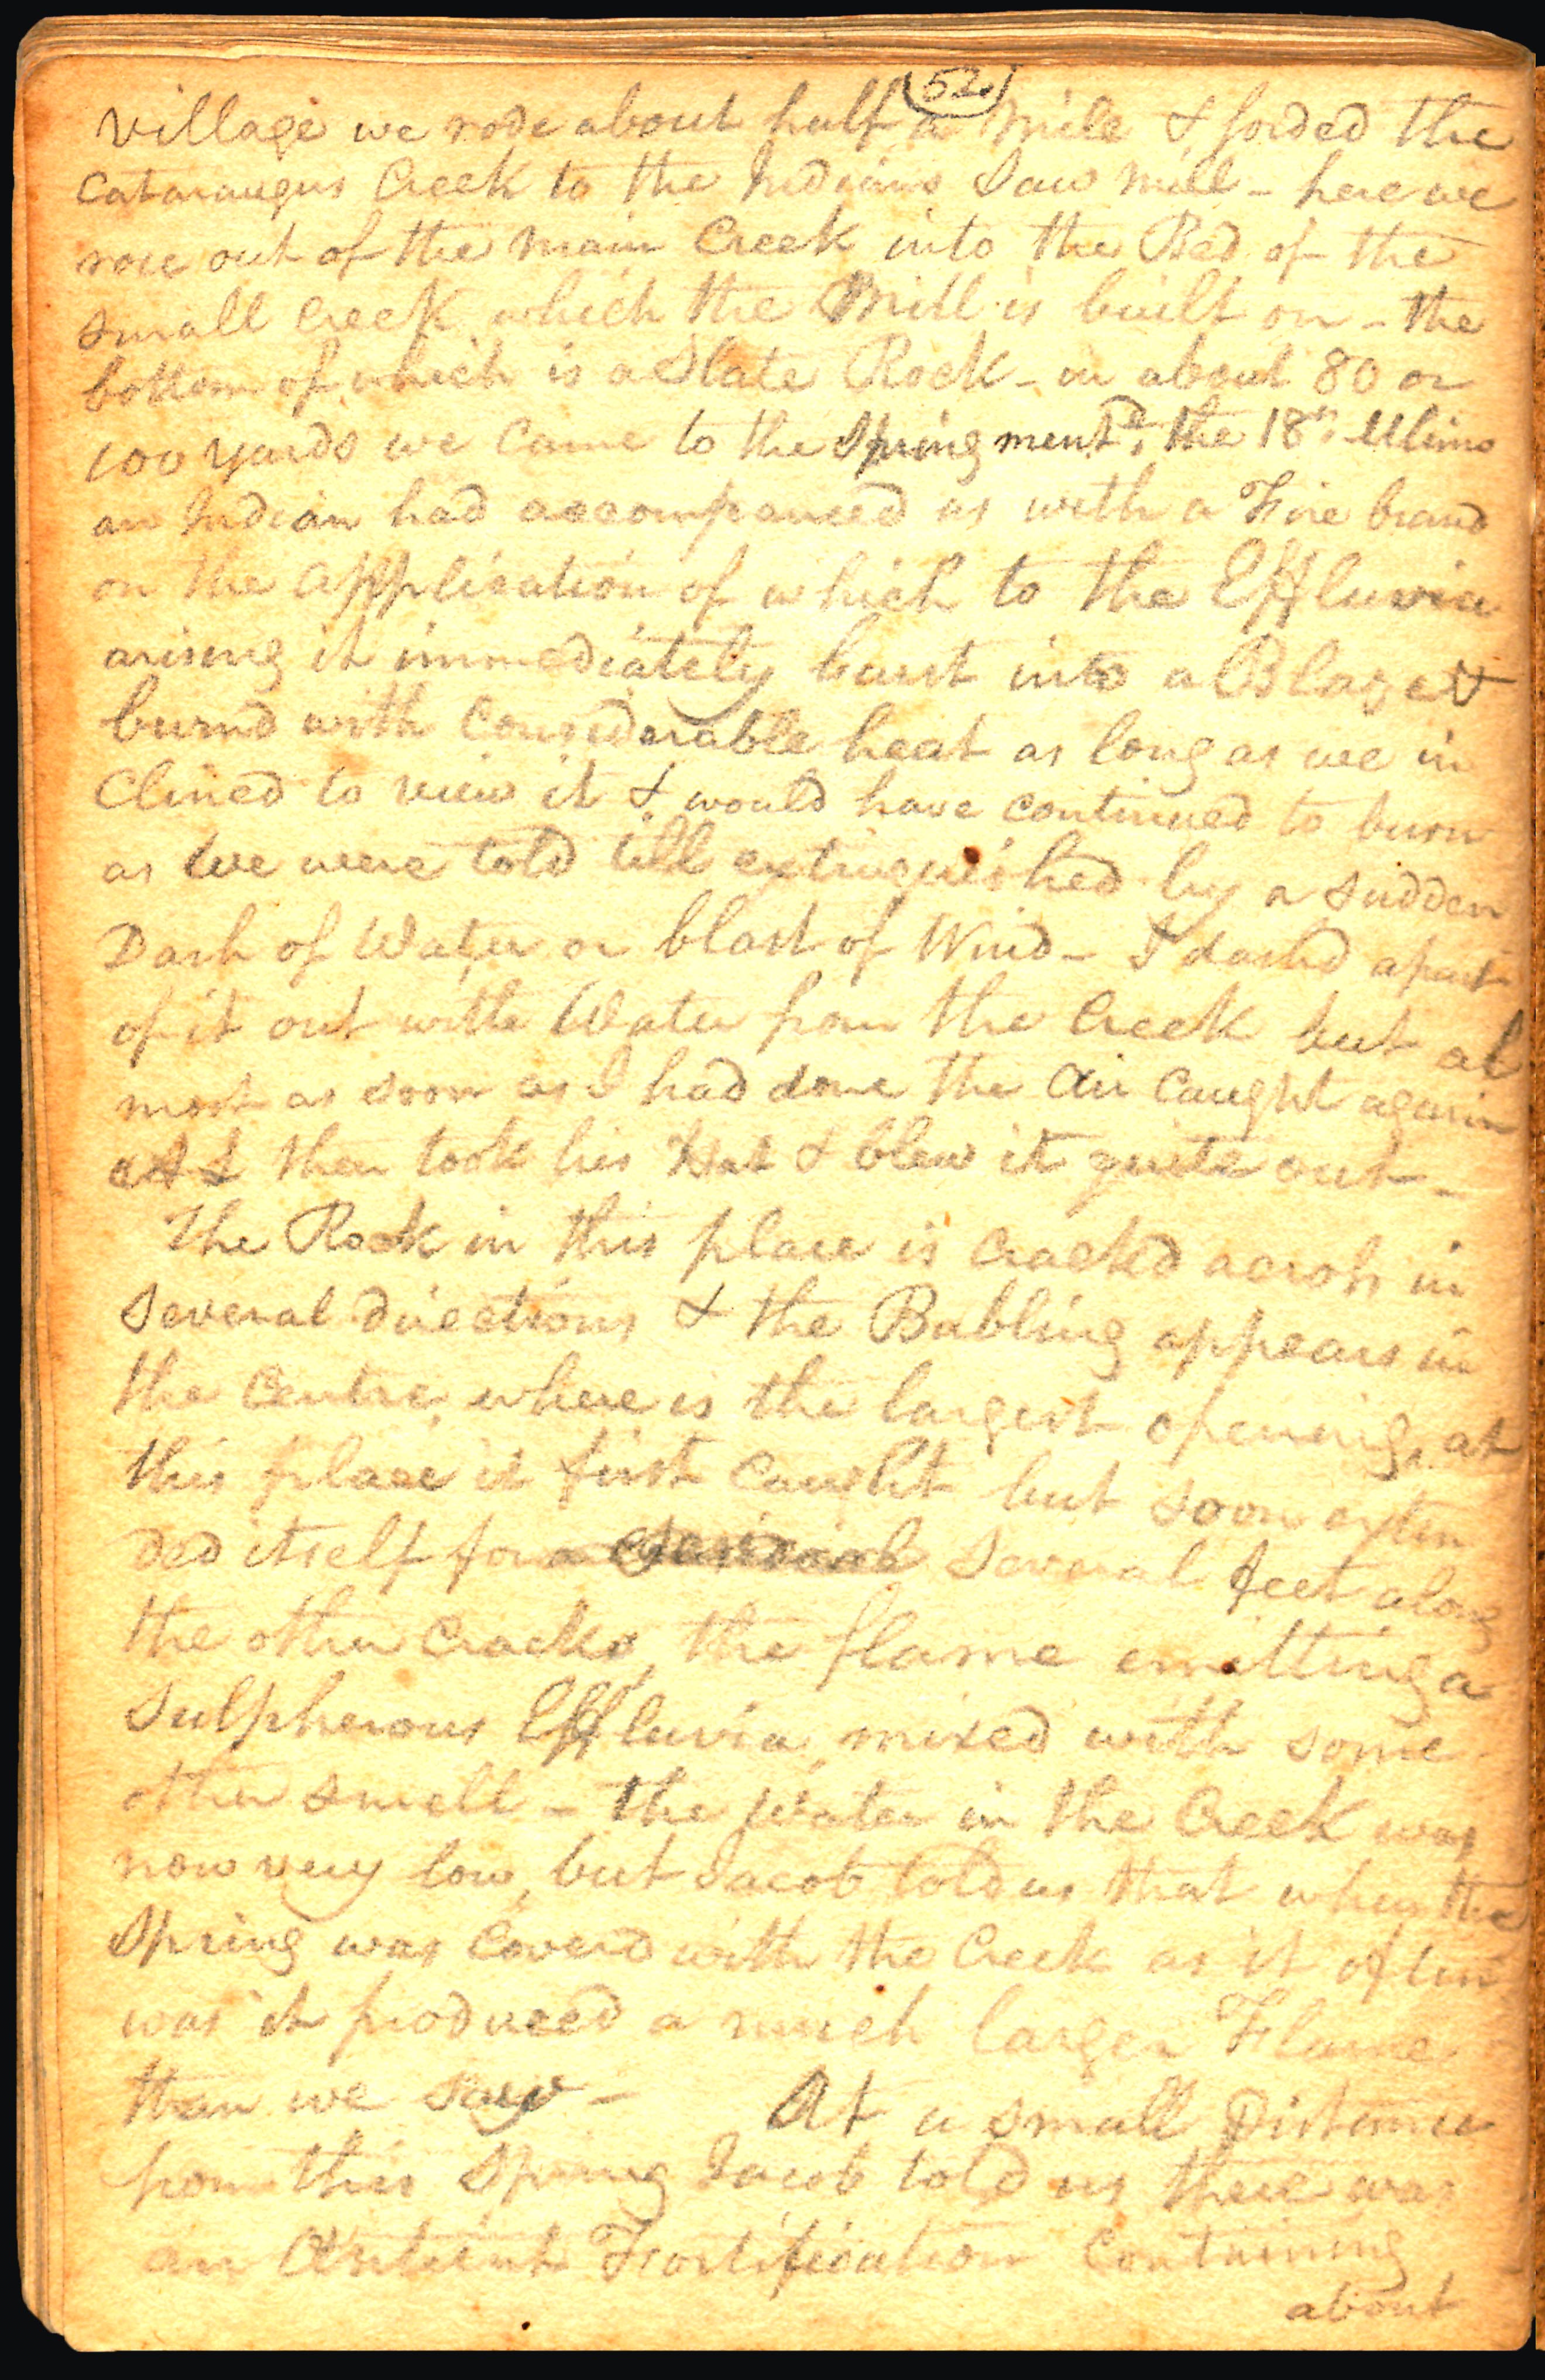 (52.)
Village we rode about half a mile & forded the
Cataraugus Creek to the Indians Saw mill - here we
rose out of the main Creek into the Bed of the
small Creek which the Mill is built on - the
bottom of which is a Slate Rock - in about 80 or
100 yards we Came to the Spring mentd. the 18th. Ultimo
an Indian had accompanied us with a Fire brand
on the application of which to the Effluvia
arising it immediately burst into a Blaze &
burnd with Considerable heat as long as we in
Clined to view it & would have continued to burn
as we were told till extinguished by a sudden
Dash of Water or blast of Wind - I dashd a part
of it out with Water from the Creek but al
most as soon as I had done the Air Caught again
then took his Hat & blew it quite out -
The Rock in this place is Crackd across in
Several directions & the Bubling appears in
the Centre where is the largest opening, at
this place it first Caught but soon exten
ded itself for a Several feet along
the other Cracks, the flame emitting a
Sulpherous Effluvia mixed with some
other smell - the Water in the Creek was
now very low, but Jacob told us that when the
Spring was Coverd with the Creek as it often
was it produced a much larger Flame
than we saw - At a small Distance
from this Spring Jacob told us there was
an Antient Fortification Containing
about